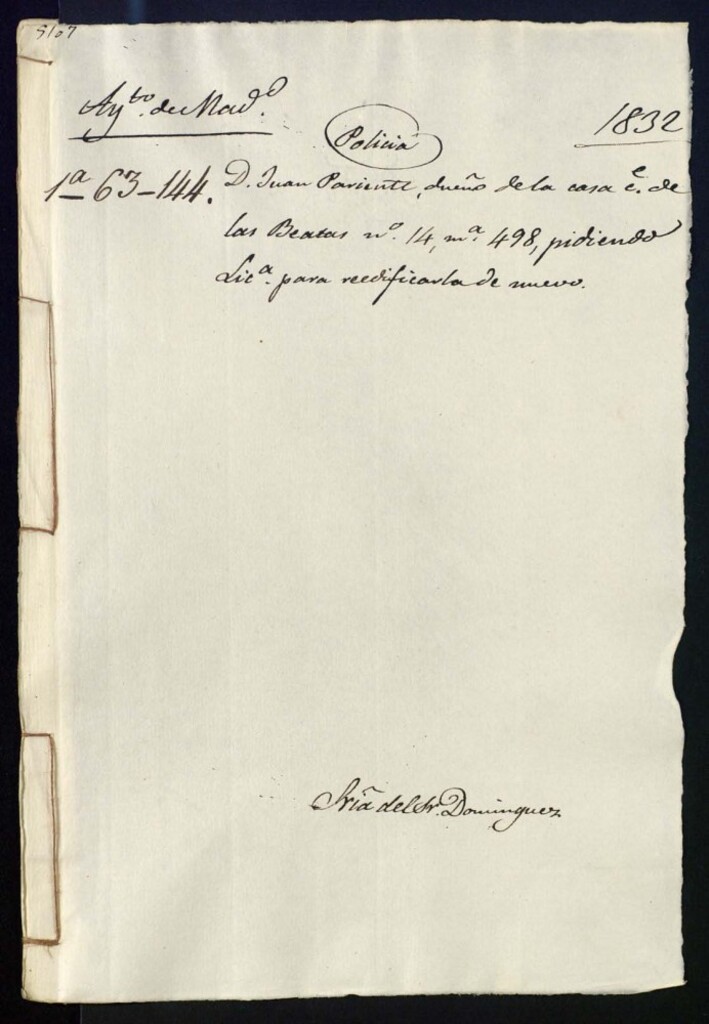 5107
Ayto. de Mado.
1832
Policia
1a 63-144.
D. Juan Pariente, dueño de la casa ce. de
las Beatas no. 14, ma. 498, pidiendo
Lica. para reedificarla de nuevo.
Sria del Sr. Dominguez